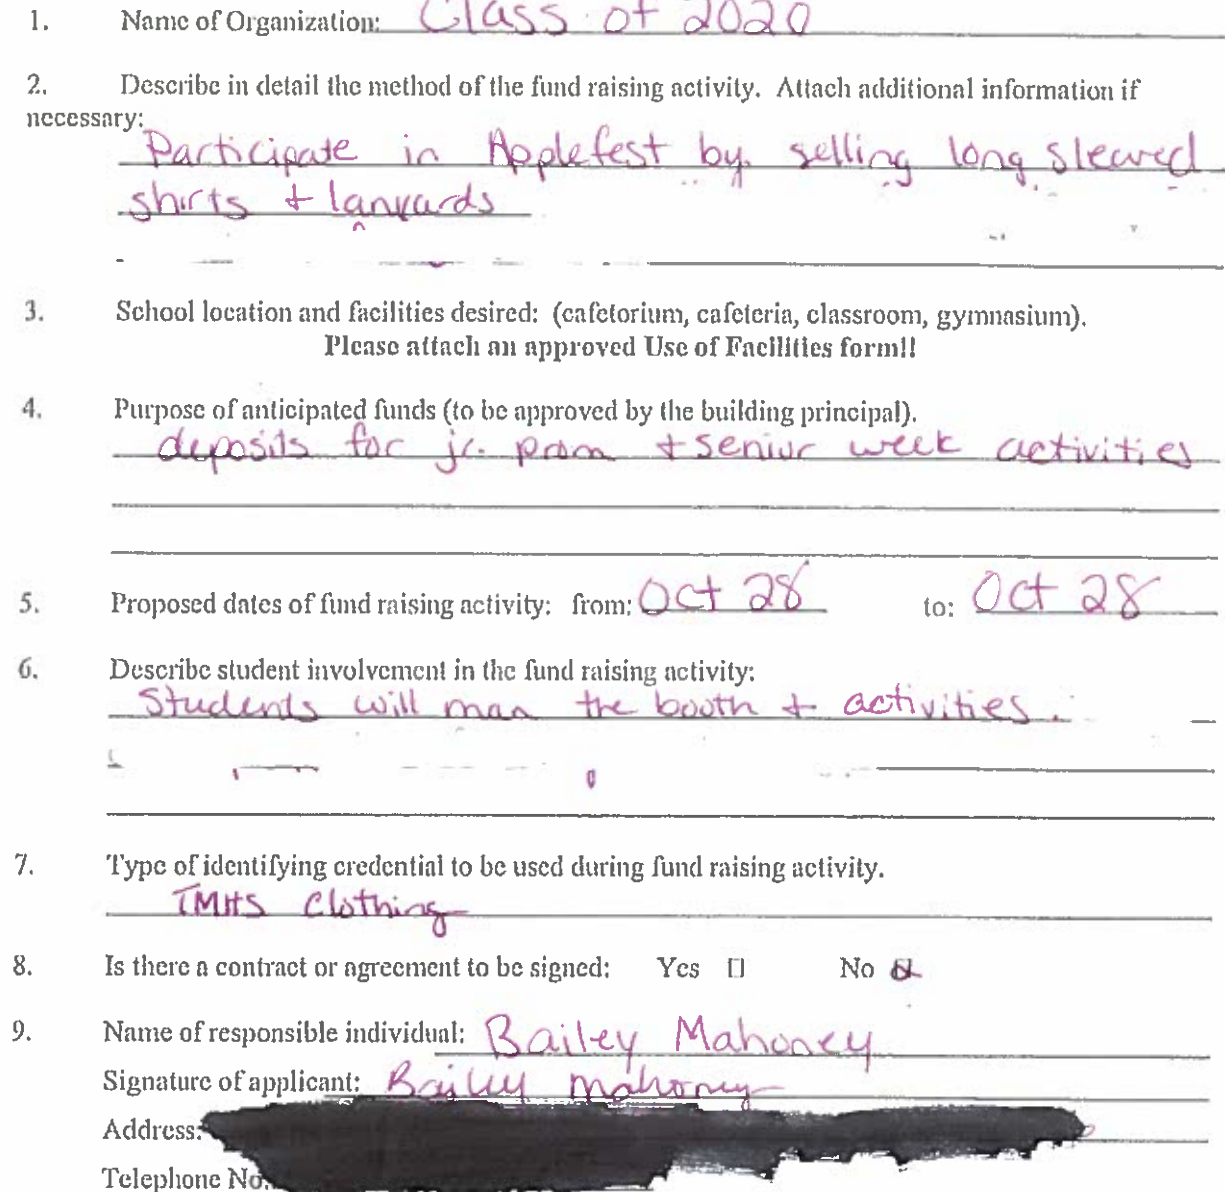 1. Name of Organization: Class of 2020
2. Describe in detail the method of the fund raising activity. Attach additional information if
necessary:
Participate in Applefest by selling long sleaved
shirts + lanyards
3. School location and facilities desired: (cafetorium, cafeteria, classroom, gymnasium).
Please attach an approved Use of Facilities form!!
4. Purpose of anticipated funds (to be approved by the building principal).
deposits for jr. prom + senior week activities
5. Proposed dates of fund raising activity: from: Oct 28 to: Oct 28
6. Describe student involvement in the fund raising activity:
Students will man the booth + activities.
7. Type of identifying credential to be used during fund raising activity.
TMHS Clothing
8. Is there a contract or agreement to be signed: Yes ☐ No ☒
9. Name of responsible individual: Bailey Mahoney
Signature of applicant: Bailey Mahoney
Address:
Telephone No.